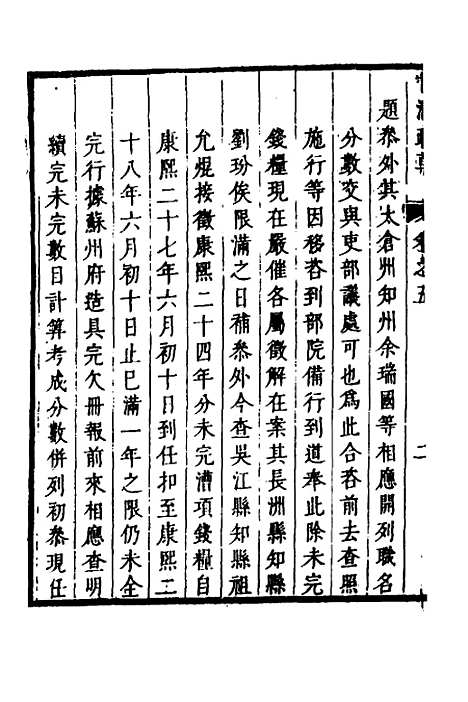 卷之五
二
題叅外其太倉州知州余瑞國等相應開列職名
分數交與吏部議處可也為此合咨前去查照
施行等因移咨到部院備行到道奉此除未完
錢糧現在嚴催各屬徵解在案其長洲縣知縣
劉玢俟限滿之日補叅外今查吳江縣知縣祖
允焜接徵康熙二十四年分未完漕項錢糧自
康熙二十七年六月初十日到任扣至康熙二
十八年六月初十日止已滿一年之限仍未全
完行據蘇州府造具完欠冊報前來相應查明
續完未完數目計算考成分數併列初叅現任